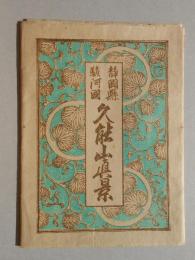 静岡縣
駿河國
久能山真景